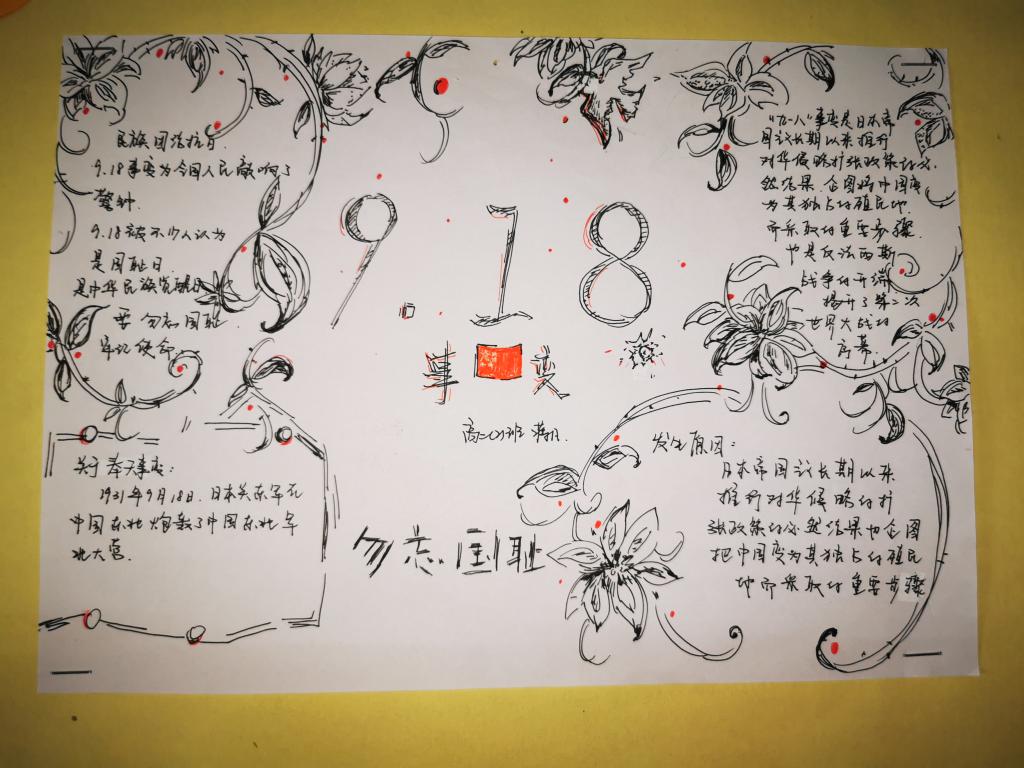 民族团结抗日.
9.18事变为全国人民敲响了
警钟.
9.18被不少人认为
是国耻日.
是中华民族觉醒日
要勿忘国耻
牢记使命
9.18
事 变
高二(1)班
"九一八"事变是日本帝
国主义长期以来推行
对华侵略扩张政策的必
然结果.企图将中国变
为其独占的殖民地
而采取的重要步骤.
也是反法西斯
战争的开端
揭开了第二次
世界大战的
序幕.
关于奉天事变:
1931年9月18日.日本关东军在
中国东北炮轰了中国东北军
北大营.
勿忘国耻
发生原因:
日本帝国主义长期以来
推行对华侵略的扩
张政策的必然结果也企图
把中国变为其独占的殖民
地而采取的重要步骤